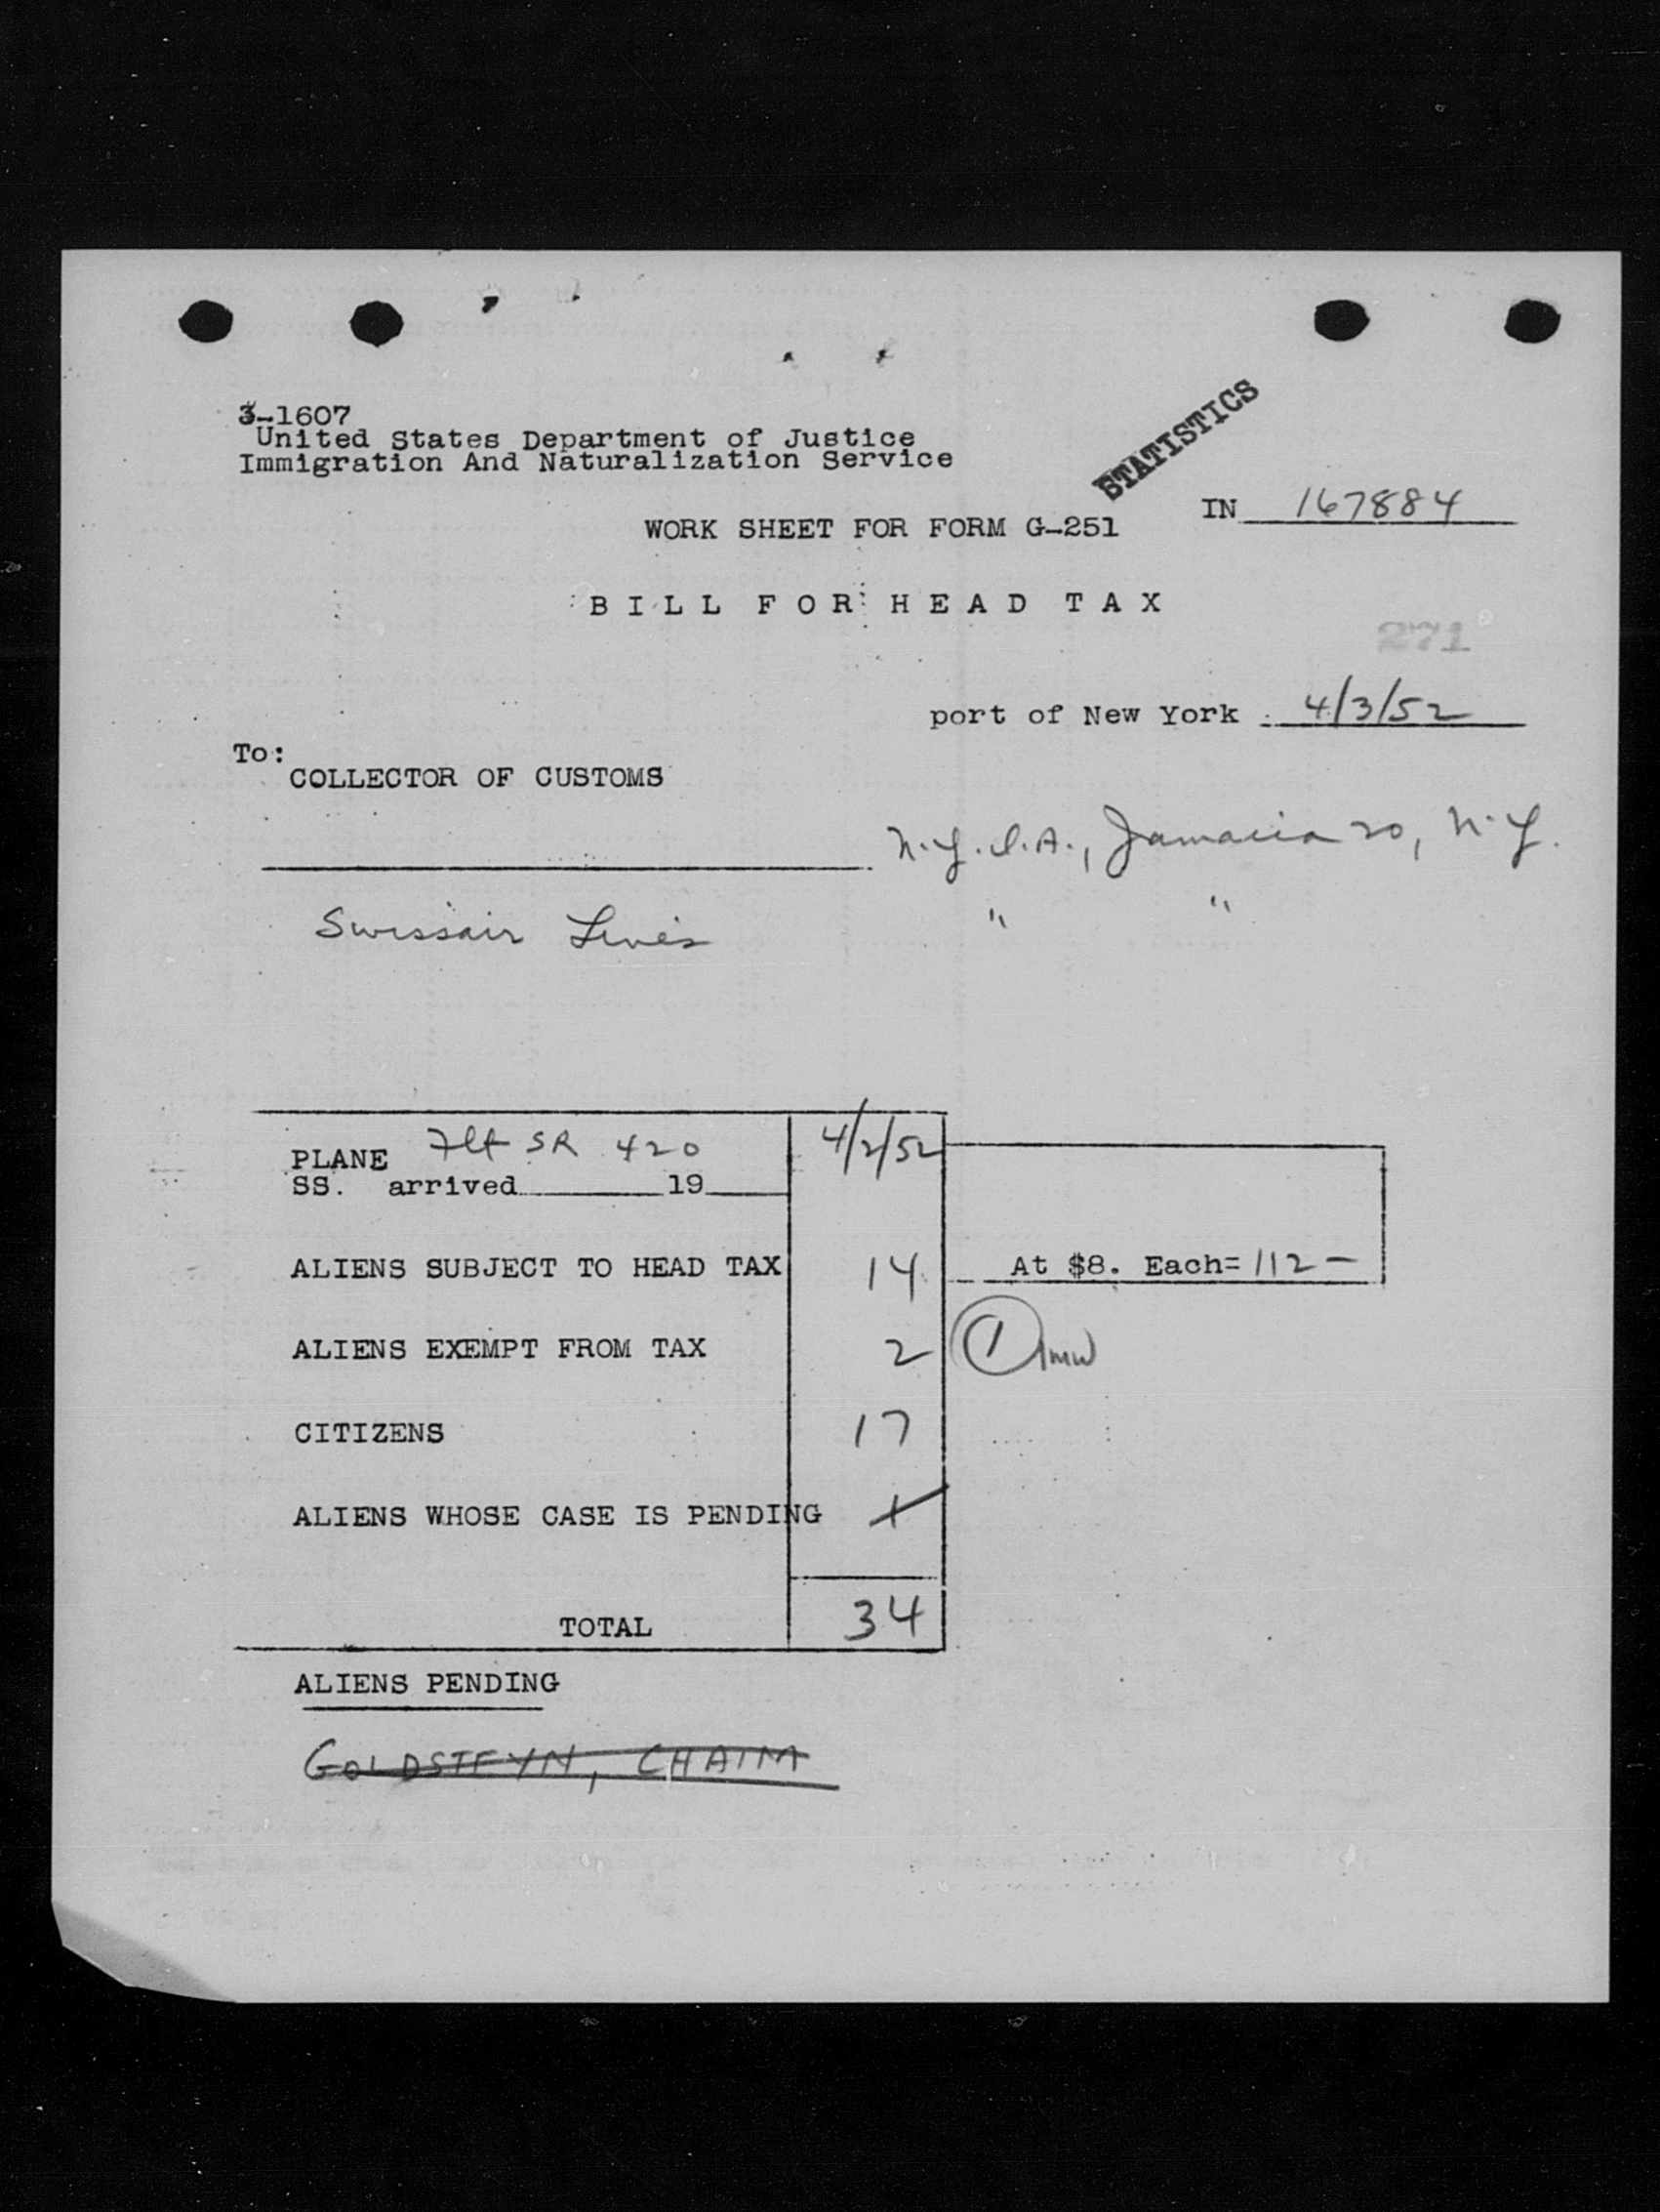 3-1607
United States Department of Justice
Immigration And Naturalization Service
STATISTICS
IN 167884
WORK SHEET FOR FORM G-251
BILL FOR HEAD TAX
271
port of New York 4/3/52
To:
COLLECTOR OF CUSTOMS
N.Y.I.A., Jamaica 20, N.Y.
Swissair Lines " "
PLANE Flt SR 420 4/2/52
SS. arrived 19
ALIENS SUBJECT TO HEAD TAX 14 At $8. Each= 112 -
ALIENS EXEMPT FROM TAX 2 1
CITIZENS 17
ALIENS WHOSE CASE IS PENDING 1
TOTAL 34
ALIENS PENDING
GOLDSTEYN, CHAIM